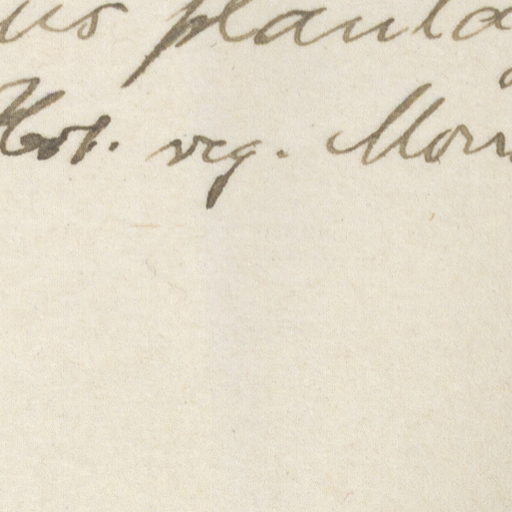 us planta
Hort. reg. Mon